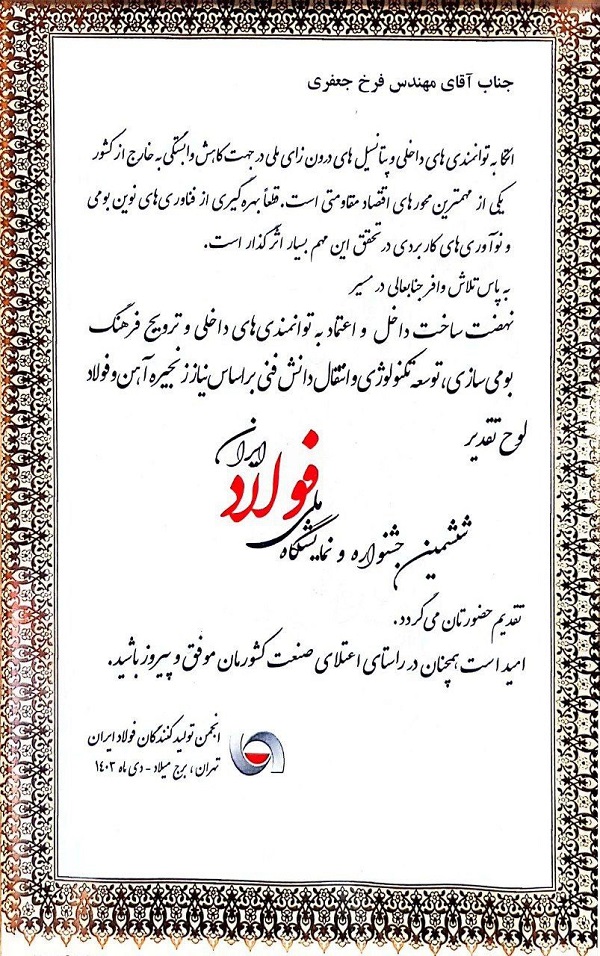 جناب آقای مهندس فرخ جعفری
اتکا به توانمندی های داخلی و پتانسیل های درون زای ملی در جهت کاهش وابستگی به خارج از کشور
یکی از مهمترین محورهای اقتصاد مقاومتی است. قطعاً بهره گیری از فناوری های نوین بومی
و نوآوری های کاربردی در تحقق این مهم بسیار اثرگذار است.
به پاس تلاش وافر جنابعالی در مسیر
نهضت ساخت داخل و اعتماد به توانمندی های داخلی و ترویج فرهنگ
بومی سازی، توسعه تکنولوژی و انتقال دانش فنی بر اساس نیاز زنجیره آهن و فولاد
لوح تقدیر
ششمین جشنواره و نمایشگاه ملی فولاد ایران
تقدیم حضورتان می گردد.
امید است همچنان در راستای اعتلای صنعت کشورمان موفق و پیروز باشید.
انجمن تولیدکنندگان فولاد ایران
تهران، برج میلاد - دی ماه ۱۴۰۳